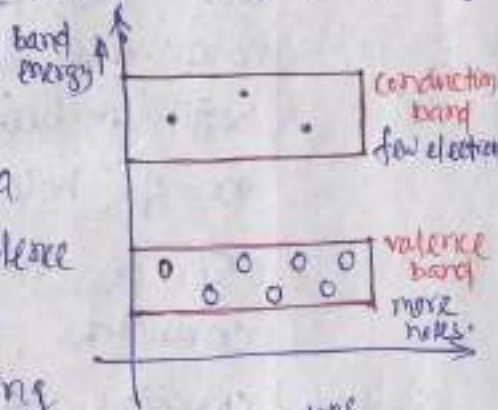 band
energy
conduction
band
few electron
valence
band
more
holes.